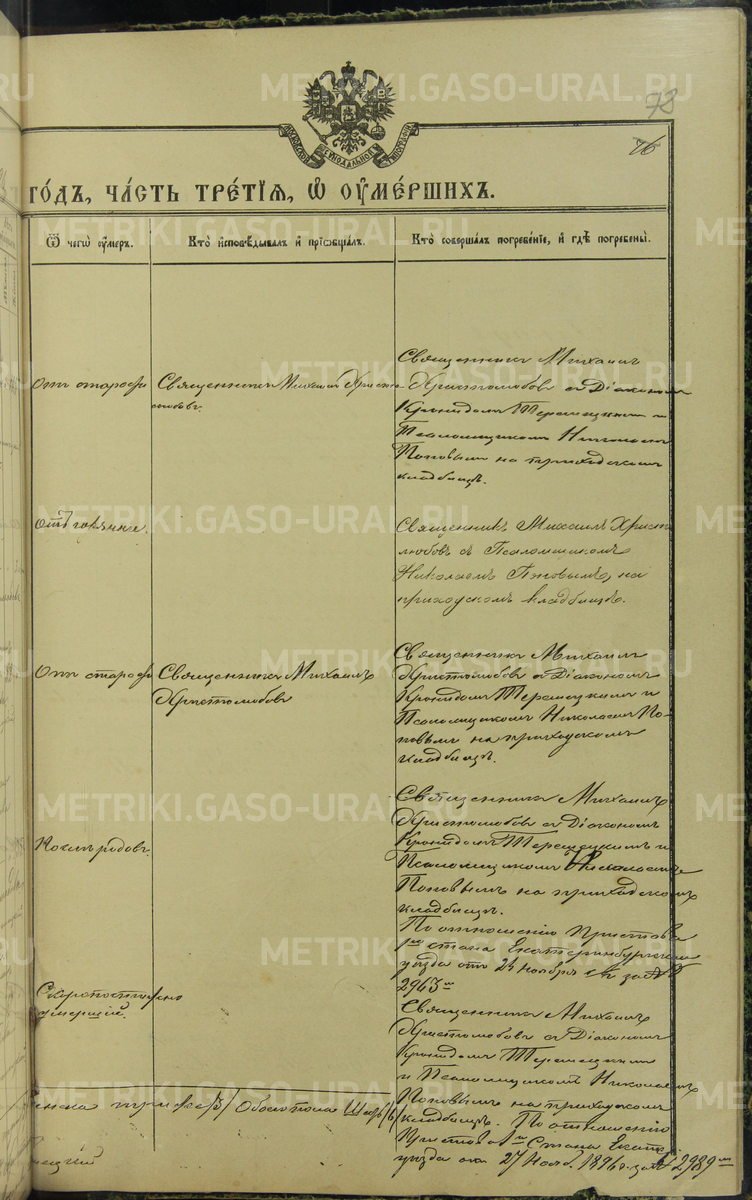 METRIKI.GASO-URAL.RU
78
76
МОСКОВСКОЙ СѴНОДАЛЬНОЙ ТИПОГРАФІИ
ГО́ДЪ, ЧА́СТЬ ТРЕ́ТІѦ, Ѽ ОУ҆МЕ́РШИХЪ.
Ѿ чегѡ̀ оу҆́меръ.
Кто̀ и҆сповѣ́дывалъ и҆ прїѡбща́лъ.
Кто̀ соверша́лъ погребе́нїе, и҆ гдѣ̀ погребены̀.
Отъ старости
Священникъ Михаилъ Христо
любовъ.
Священникъ Михаилъ
Христолюбовъ съ Діакономъ
Кронидомъ Терешецкимъ и
Псаломщикомъ Николаемъ
Поповымъ на приходскомъ
кладбищѣ.
METRIKI.GASO-URAL.RU
Священникъ Михаилъ Христо
любовъ съ Псаломщикомъ
Николаемъ Поповымъ, на
приходскомъ кладбищѣ.
Отъ старости
Священникъ Михаилъ
Христолюбовъ
Священникъ Михаилъ
Христолюбовъ съ Діакономъ
Кронидомъ Терешецкимъ и
Псаломщикомъ Николаемъ По-
повымъ на приходскомъ
кладбищѣ.
METRIKI.GASO-URAL.RU
Послѣ родовъ.
Священникъ Михаилъ
Христолюбовъ съ Діакономъ
Кронидомъ Терешецкимъ и
Псаломщикомъ Николаемъ
Поповымъ на приходскомъ
кладбищѣ.
По отношенію Пристава
1го стана Екатеринбургскаго
уѣзда отъ 24 Ноября за №
2963м
Скоропостижно
умершій.
Священникъ Михаилъ
Христолюбовъ съ Діакономъ
Кронидомъ Терешецкимъ
и Псаломщикомъ Николаемъ
Поповымъ на приходскомъ
кладбищѣ. По отношенію
Пристава 1го Стана Екат.
уѣзда отъ 27 Нояб. 1896 г. за № 2989м